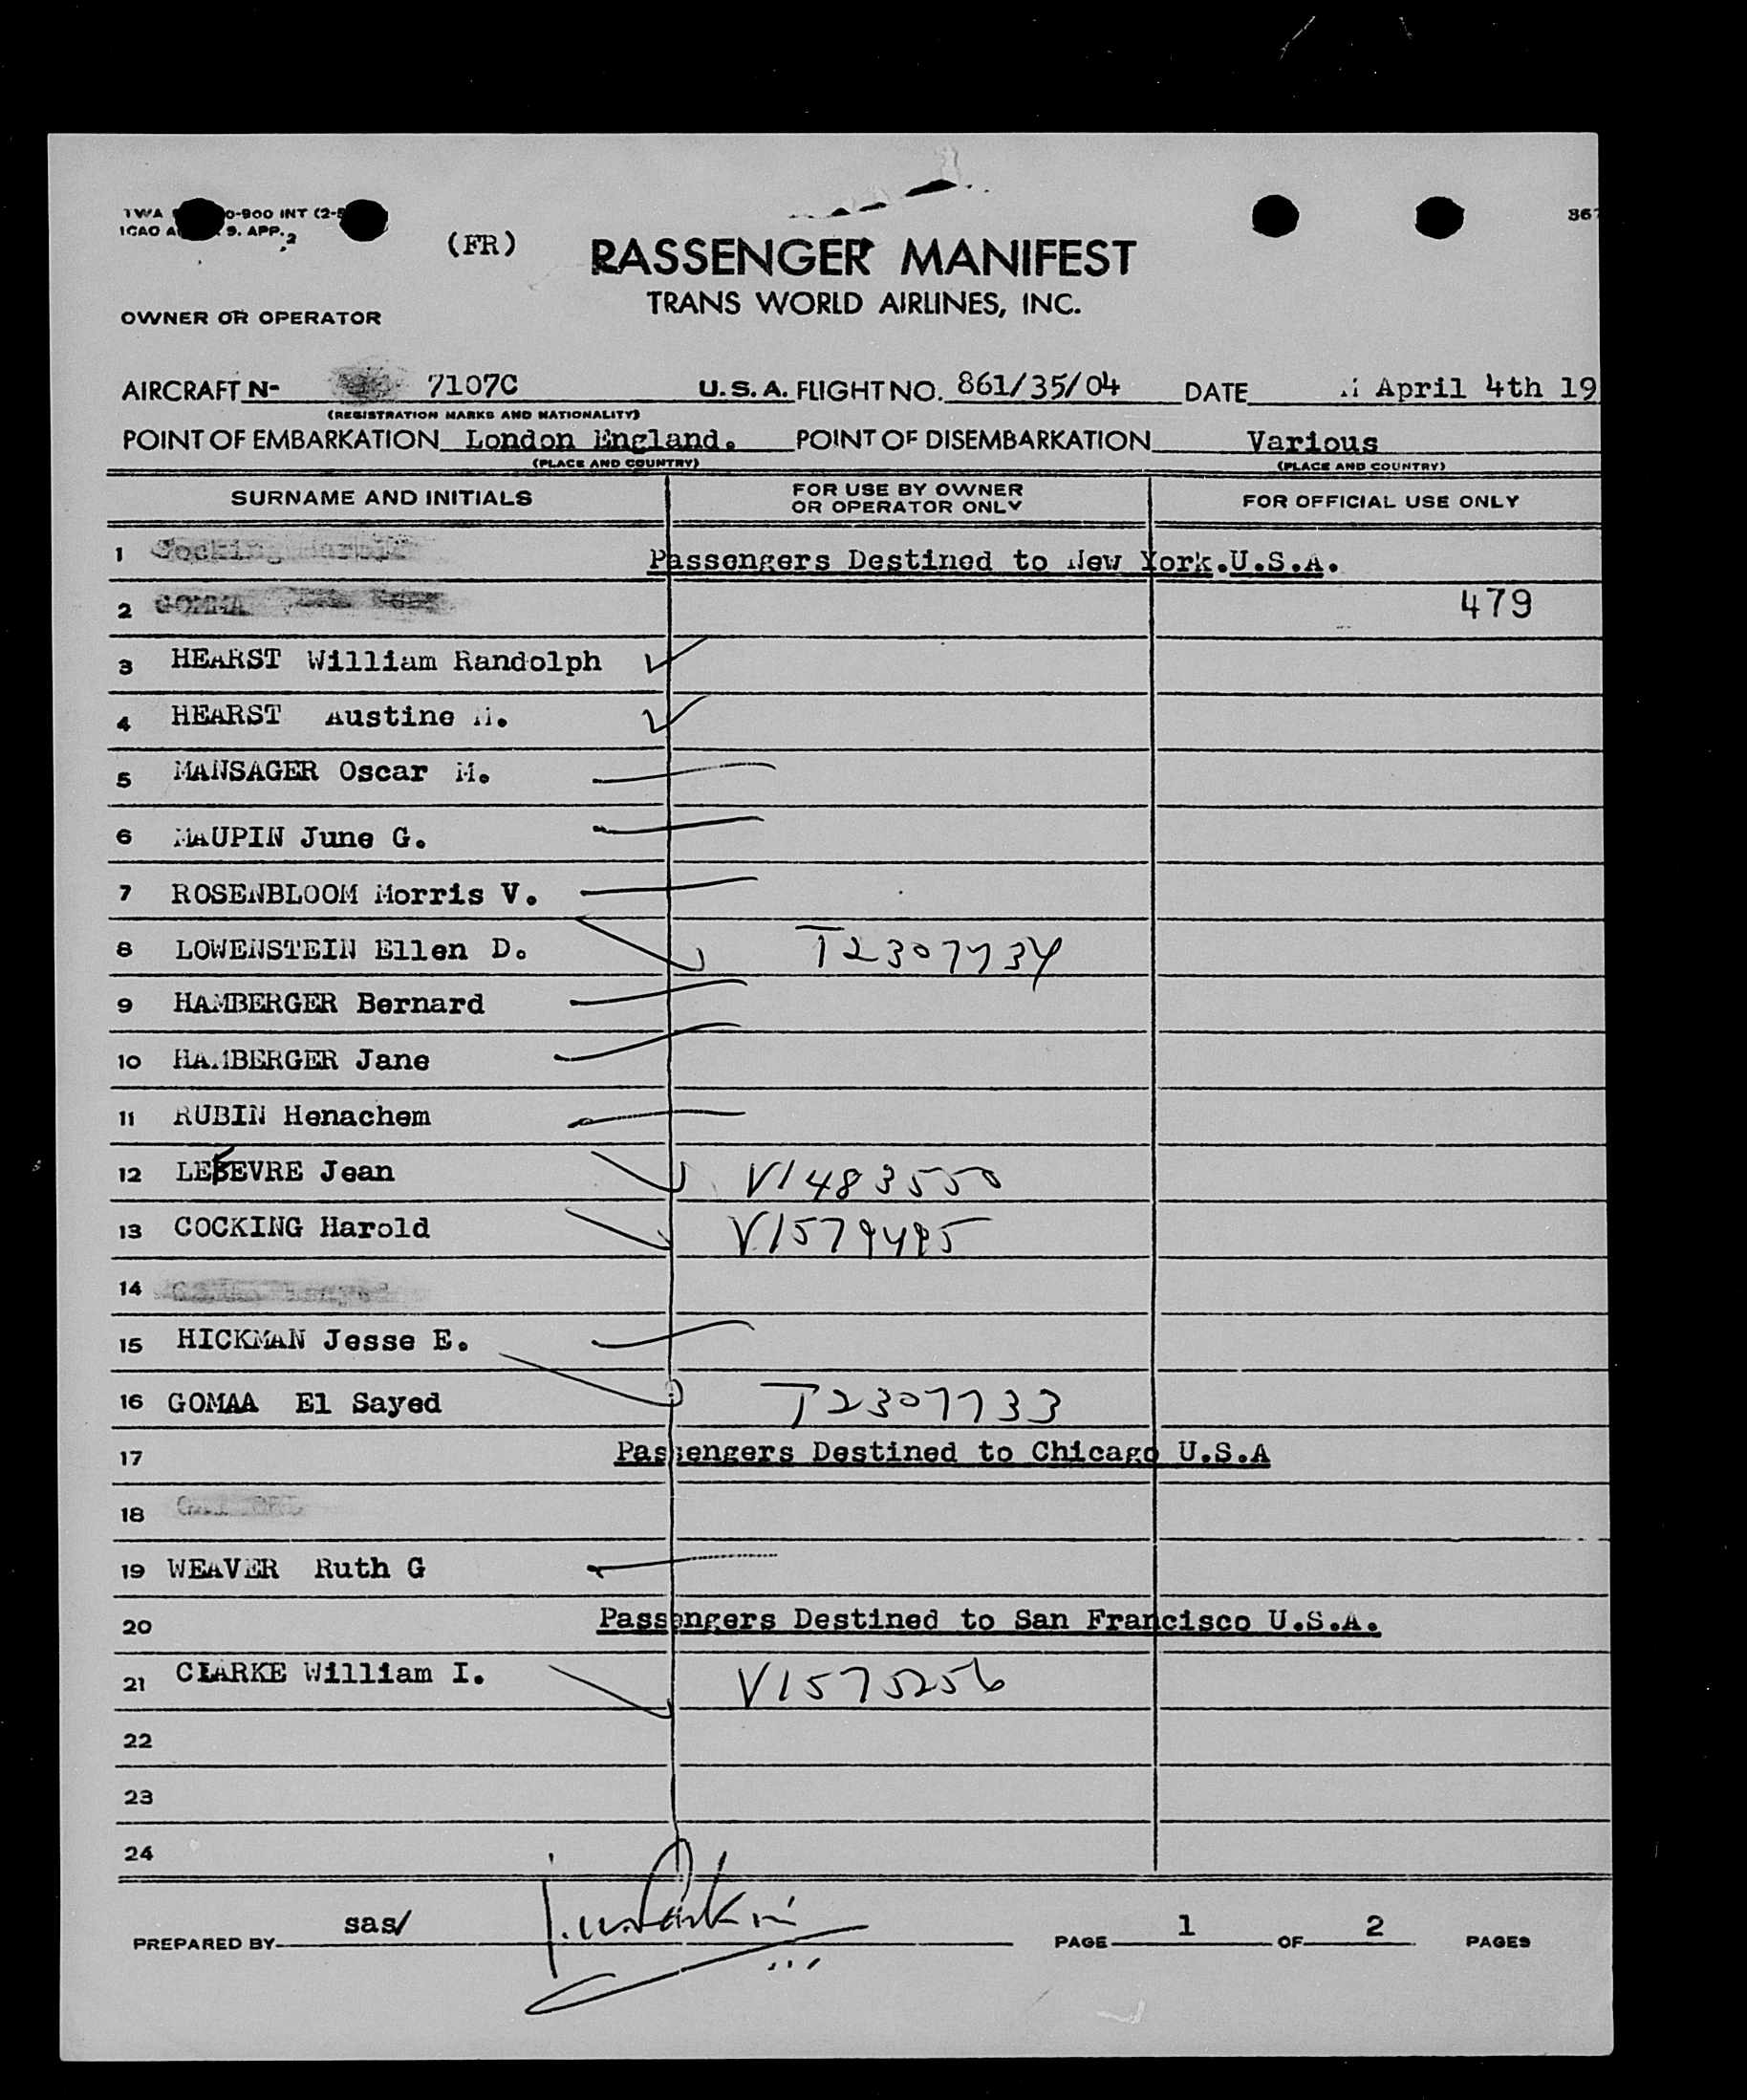 TWA 0-900 INT (2-5
ICAO A 9. APP. 2
(FR)
367
PASSENGER MANIFEST
TRANS WORLD AIRLINES, INC.
OWNER OR OPERATOR
AIRCRAFT N- 7107C U.S.A. FLIGHT NO. 861/35/04 DATE April 4th 19
(REGISTRATION MARKS AND NATIONALITY)
POINT OF EMBARKATION London England. POINT OF DISEMBARKATION Various
(PLACE AND COUNTRY) (PLACE AND COUNTRY)
SURNAME AND INITIALS FOR USE BY OWNER OR OPERATOR ONLY FOR OFFICIAL USE ONLY
1 Cocking Passengers Destined to New York.U.S.A.
2 479
3 HEARST William Randolph
4 HEARST Austine M.
5 MANSAGER Oscar M.
6 MAUPIN June G.
7 ROSENBLOOM Morris V.
8 LOWENSTEIN Ellen D. T2307734
9 HAMBERGER Bernard
10 HAMBERGER Jane
11 RUBIN Henachem
12 LEFEVRE Jean V1483550
13 COCKING Harold V1579495
14
15 HICKMAN Jesse E.
16 GOMAA El Sayed T2307733
17 Passengers Destined to Chicago U.S.A
18
19 WEAVER Ruth G
20 Passengers Destined to San Francisco U.S.A.
21 CLARKE William I. V1575256
22
23
24
PREPARED BY sas/ PAGE 1 OF 2 PAGES